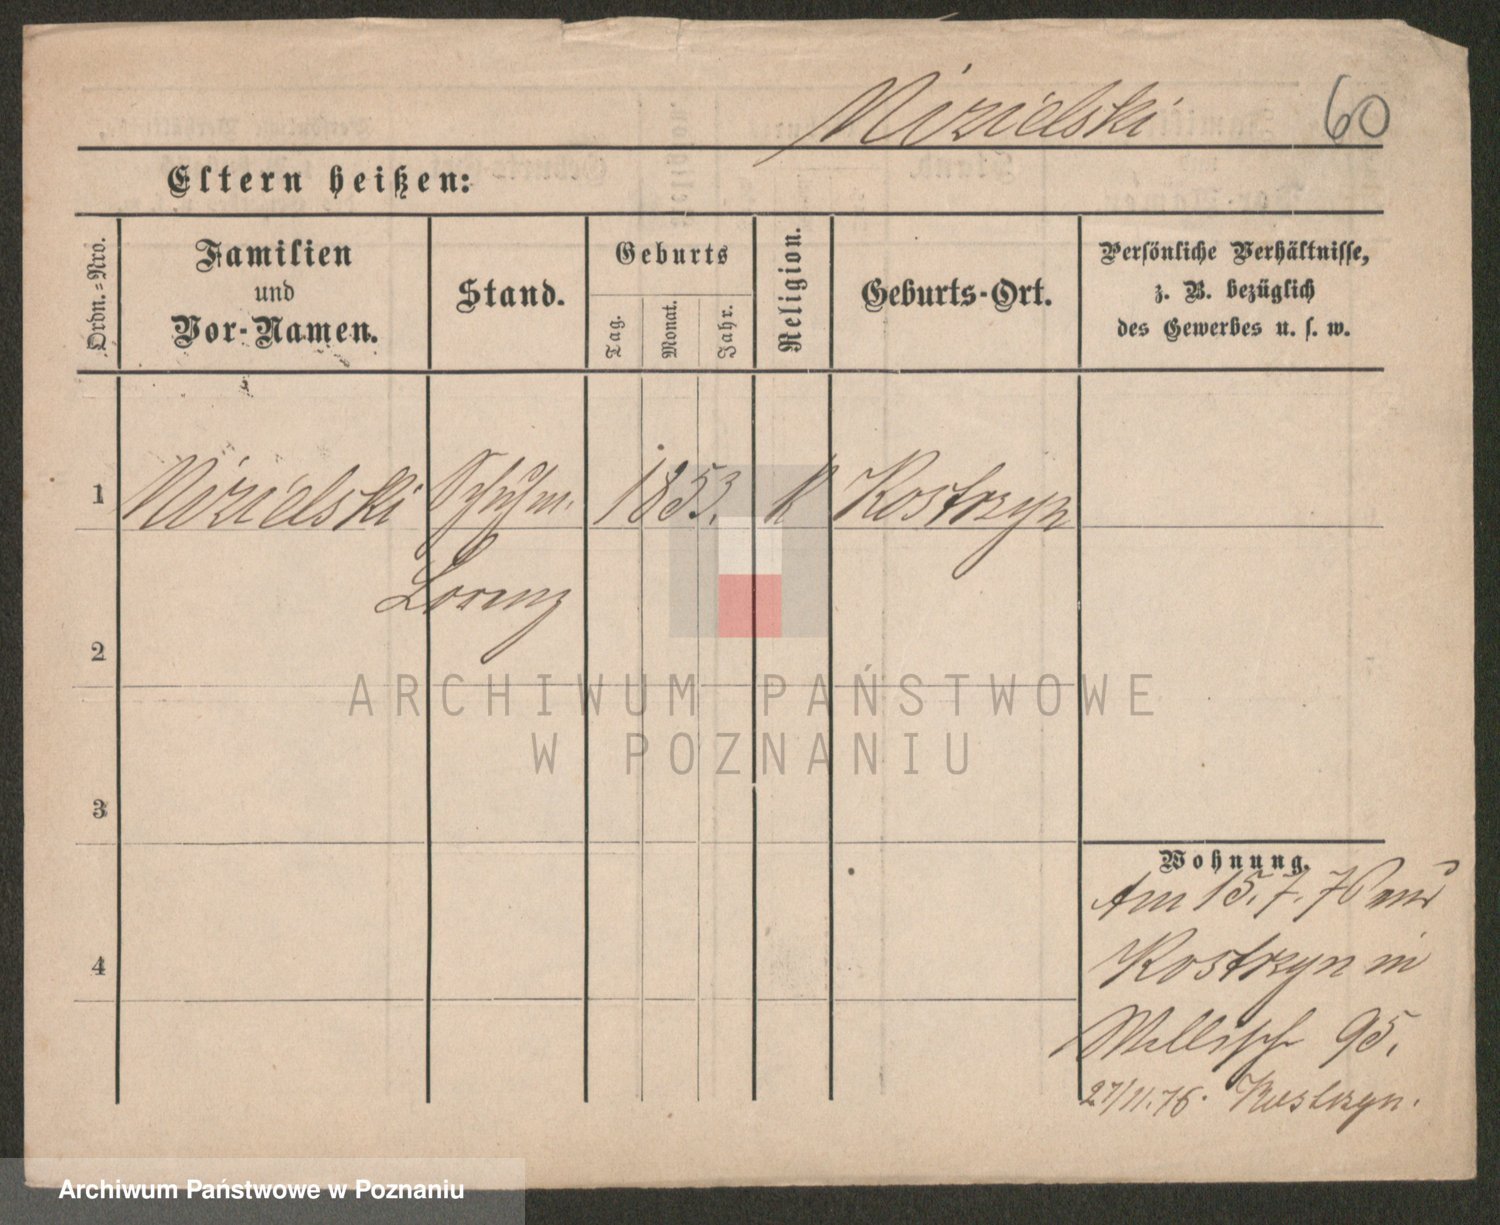 Nizielski 60
Eltern heißen:
Ordn.-Nro.
Familien
und
Vor-Namen.
Stand.
Geburts
Tag.
Monat.
Jahr.
Religion.
Geburts-Ort.
Persönliche Verhältnisse,
z. B. bezüglich
des Gewerbes u. s. w.
1 Nizielski Schuhm. 1853. k Kostrzyn
Lorenz
2
3
4
Wohnung.
Am 15. 7. 76 aus
Kostrzyn in
95.
27/11.76. Kostrzyn.
ARCHIWUM PAŃSTWOWE
W POZNANIU
Archiwum Państwowe w Poznaniu